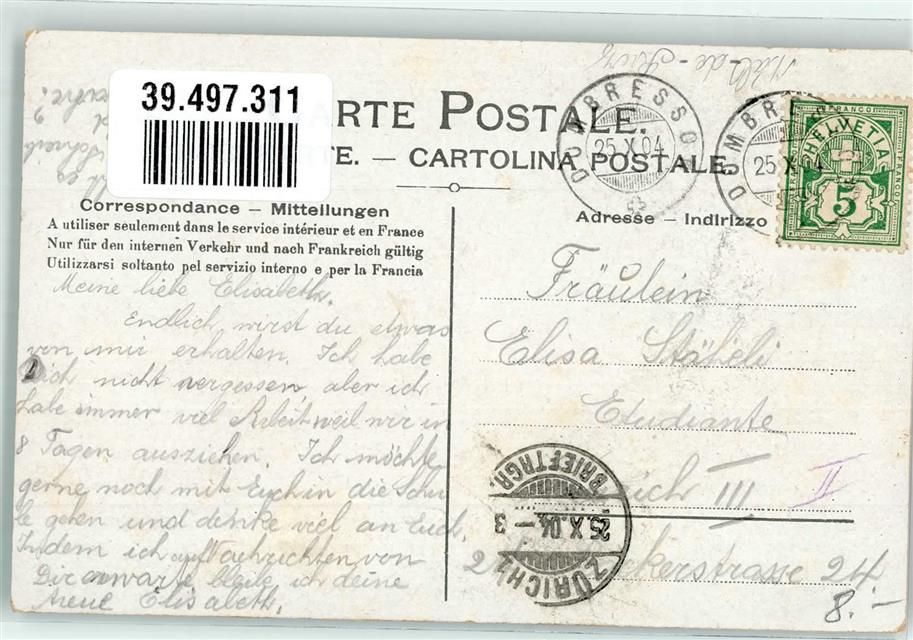 39.497.311
ARTE POSTALE.
RTE. — CARTOLINA POSTALE.
DOMBRESSON
25.X.04
DOMBRE
25.X.04
FRANCO
HELVETIA
FRANCO
5
Correspondance — Mitteilungen
A utiliser seulement dans le service intérieur et en France
Nur für den internen Verkehr und nach Frankreich gültig
Utilizzarsi soltanto pel servizio interno e per la Francia
Adresse — Indirizzo
Meine liebe Elisabeth.
Endlich wirst du etwas
von mir erhalten. Ich habe
dich nicht vergessen aber ich
habe immer viel Arbeit weil wir in
8 Tagen ausziehen. Ich möchte
gerne noch mit Euch in die Schu
le gehen und denke viel an Euch.
Indem ich auf Nachrichten von
Dir erwarte bleibe ich deine
treue Elisabeth.
Fräulein
Elisa Stäheli
Etudiante
ich III II
kerstrasse 24
8.-
BRIEFTRGR.
25.X.04–3
ZÜRICH